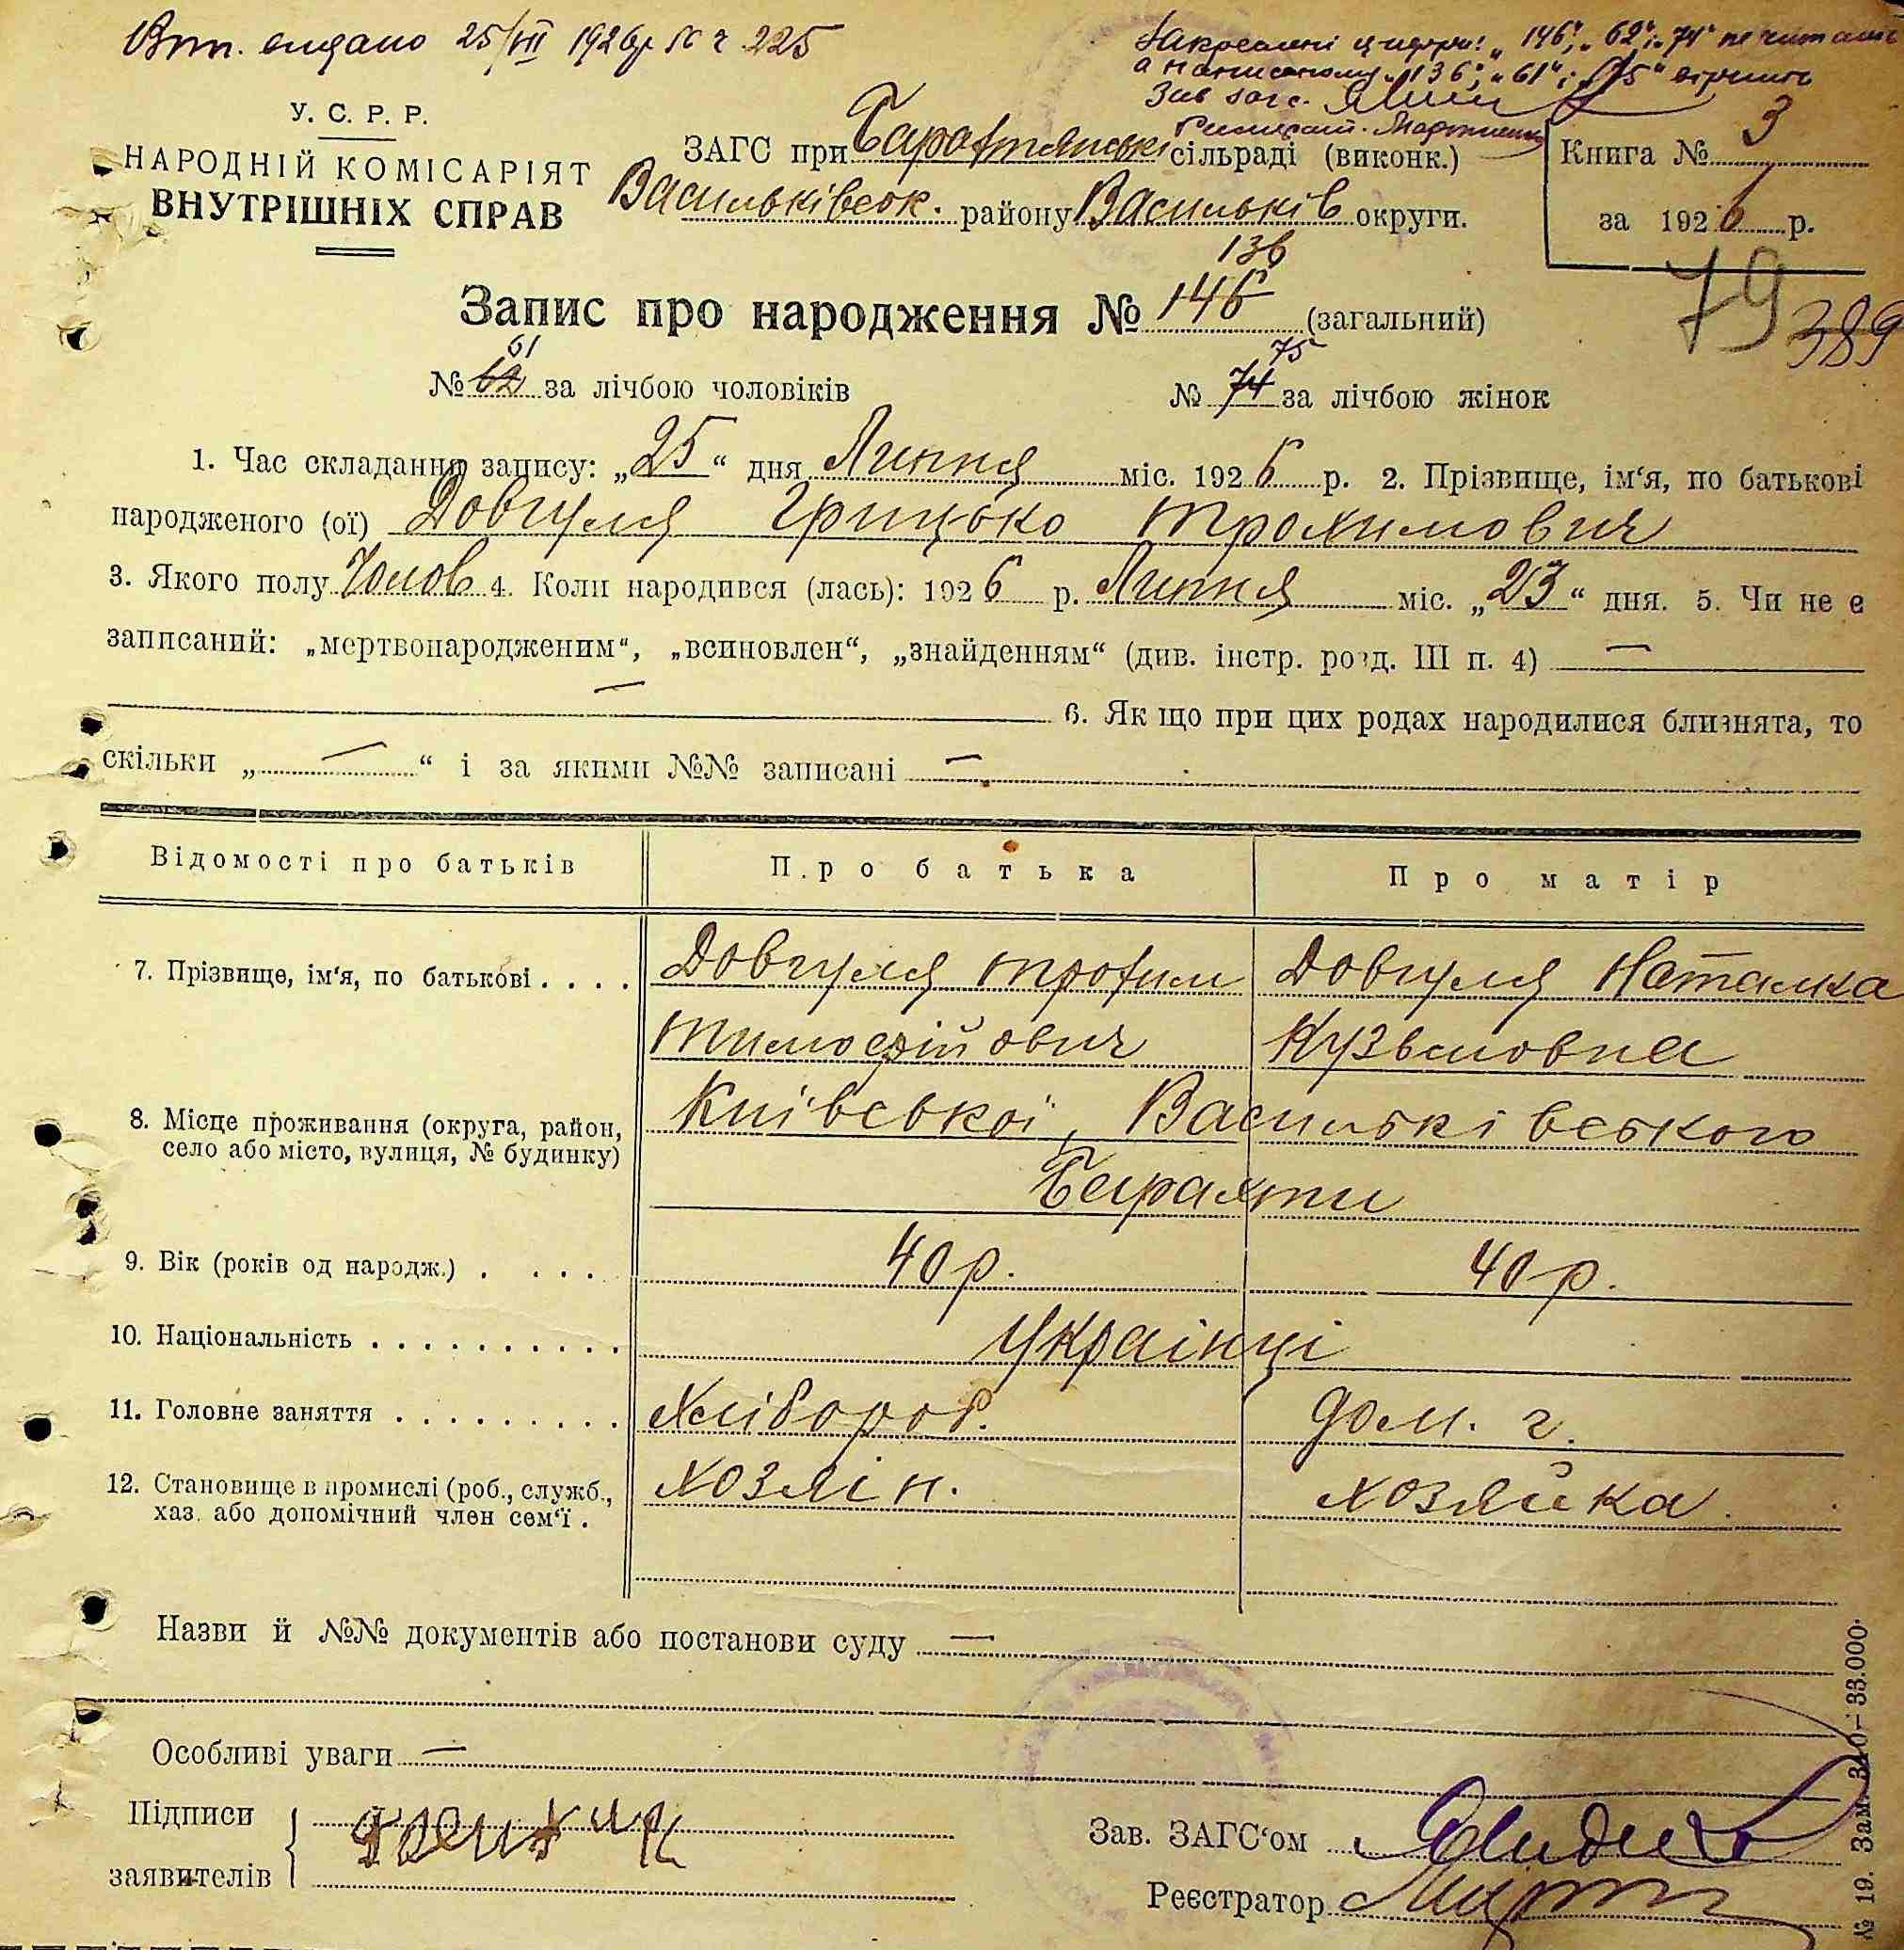 Вип. видано 25/VII 1926р № 225
Закреслені цифри: „146“, „62“ і „74“ не читати
а написаному „136“, „61“ і „75“ вірить
Зав загс.
У. С. Р. Р.
НАРОДНІЙ КОМІСАРІЯТ
ВНУТРІШНІХ СПРАВ
ЗАГС при Барахтянські сільраді (виконк.)
Васильківськ. району Васильків округи.
Книга № 3
за 1926 р.
79
389
136
Запис про народження № 146 (загальний)
61
№ 62 за лічбою чоловіків
75
№ 74 за лічбою жінок
1. Час складання запису: „25“ дня Липня міс. 1926 р. 2. Прізвище, ім‘я, по батькові
народженого (ої) Довгуля Грицько Трохимович
3. Якого полу Чолов 4. Коли народився (лась): 1926 р. Липня міс. „23“ дня. 5. Чи не є
записаний: „мертвонародженим“, „всиновлен“, „знайденням“ (див. інстр. розд. III п. 4) —
— 6. Якщо при цих родах народилися близнята, то
скільки „—“ і за якими №№ записані —
Відомості про батьків Про батька Про матір
7. Прізвище, ім‘я, по батькові . . . . Довгуля Трохим Довгуля Наталка
Тимофійович Кузьмовна
8. Місце проживання (округа, район,
село або місто, вулиця, № будинку)
Київської, Васильківського
Барахти
9. Вік (років од народж.) . . . . 40 р. 40 р.
10. Національність . . . . . . . . . . Українці
11. Головне заняття . . . . . . . . . Хлібороб. дом. г.
12. Становище в промислі (роб., служб.,
хаз. або допомічний член сем‘ї .
хозяін. хозяйка.
Назви й №№ документів або постанови суду —
Особливі уваги —
Підписи
заявителів
Зав. ЗАГС‘ом
Реєстратор
№ 19. Зам. 340—33.000.